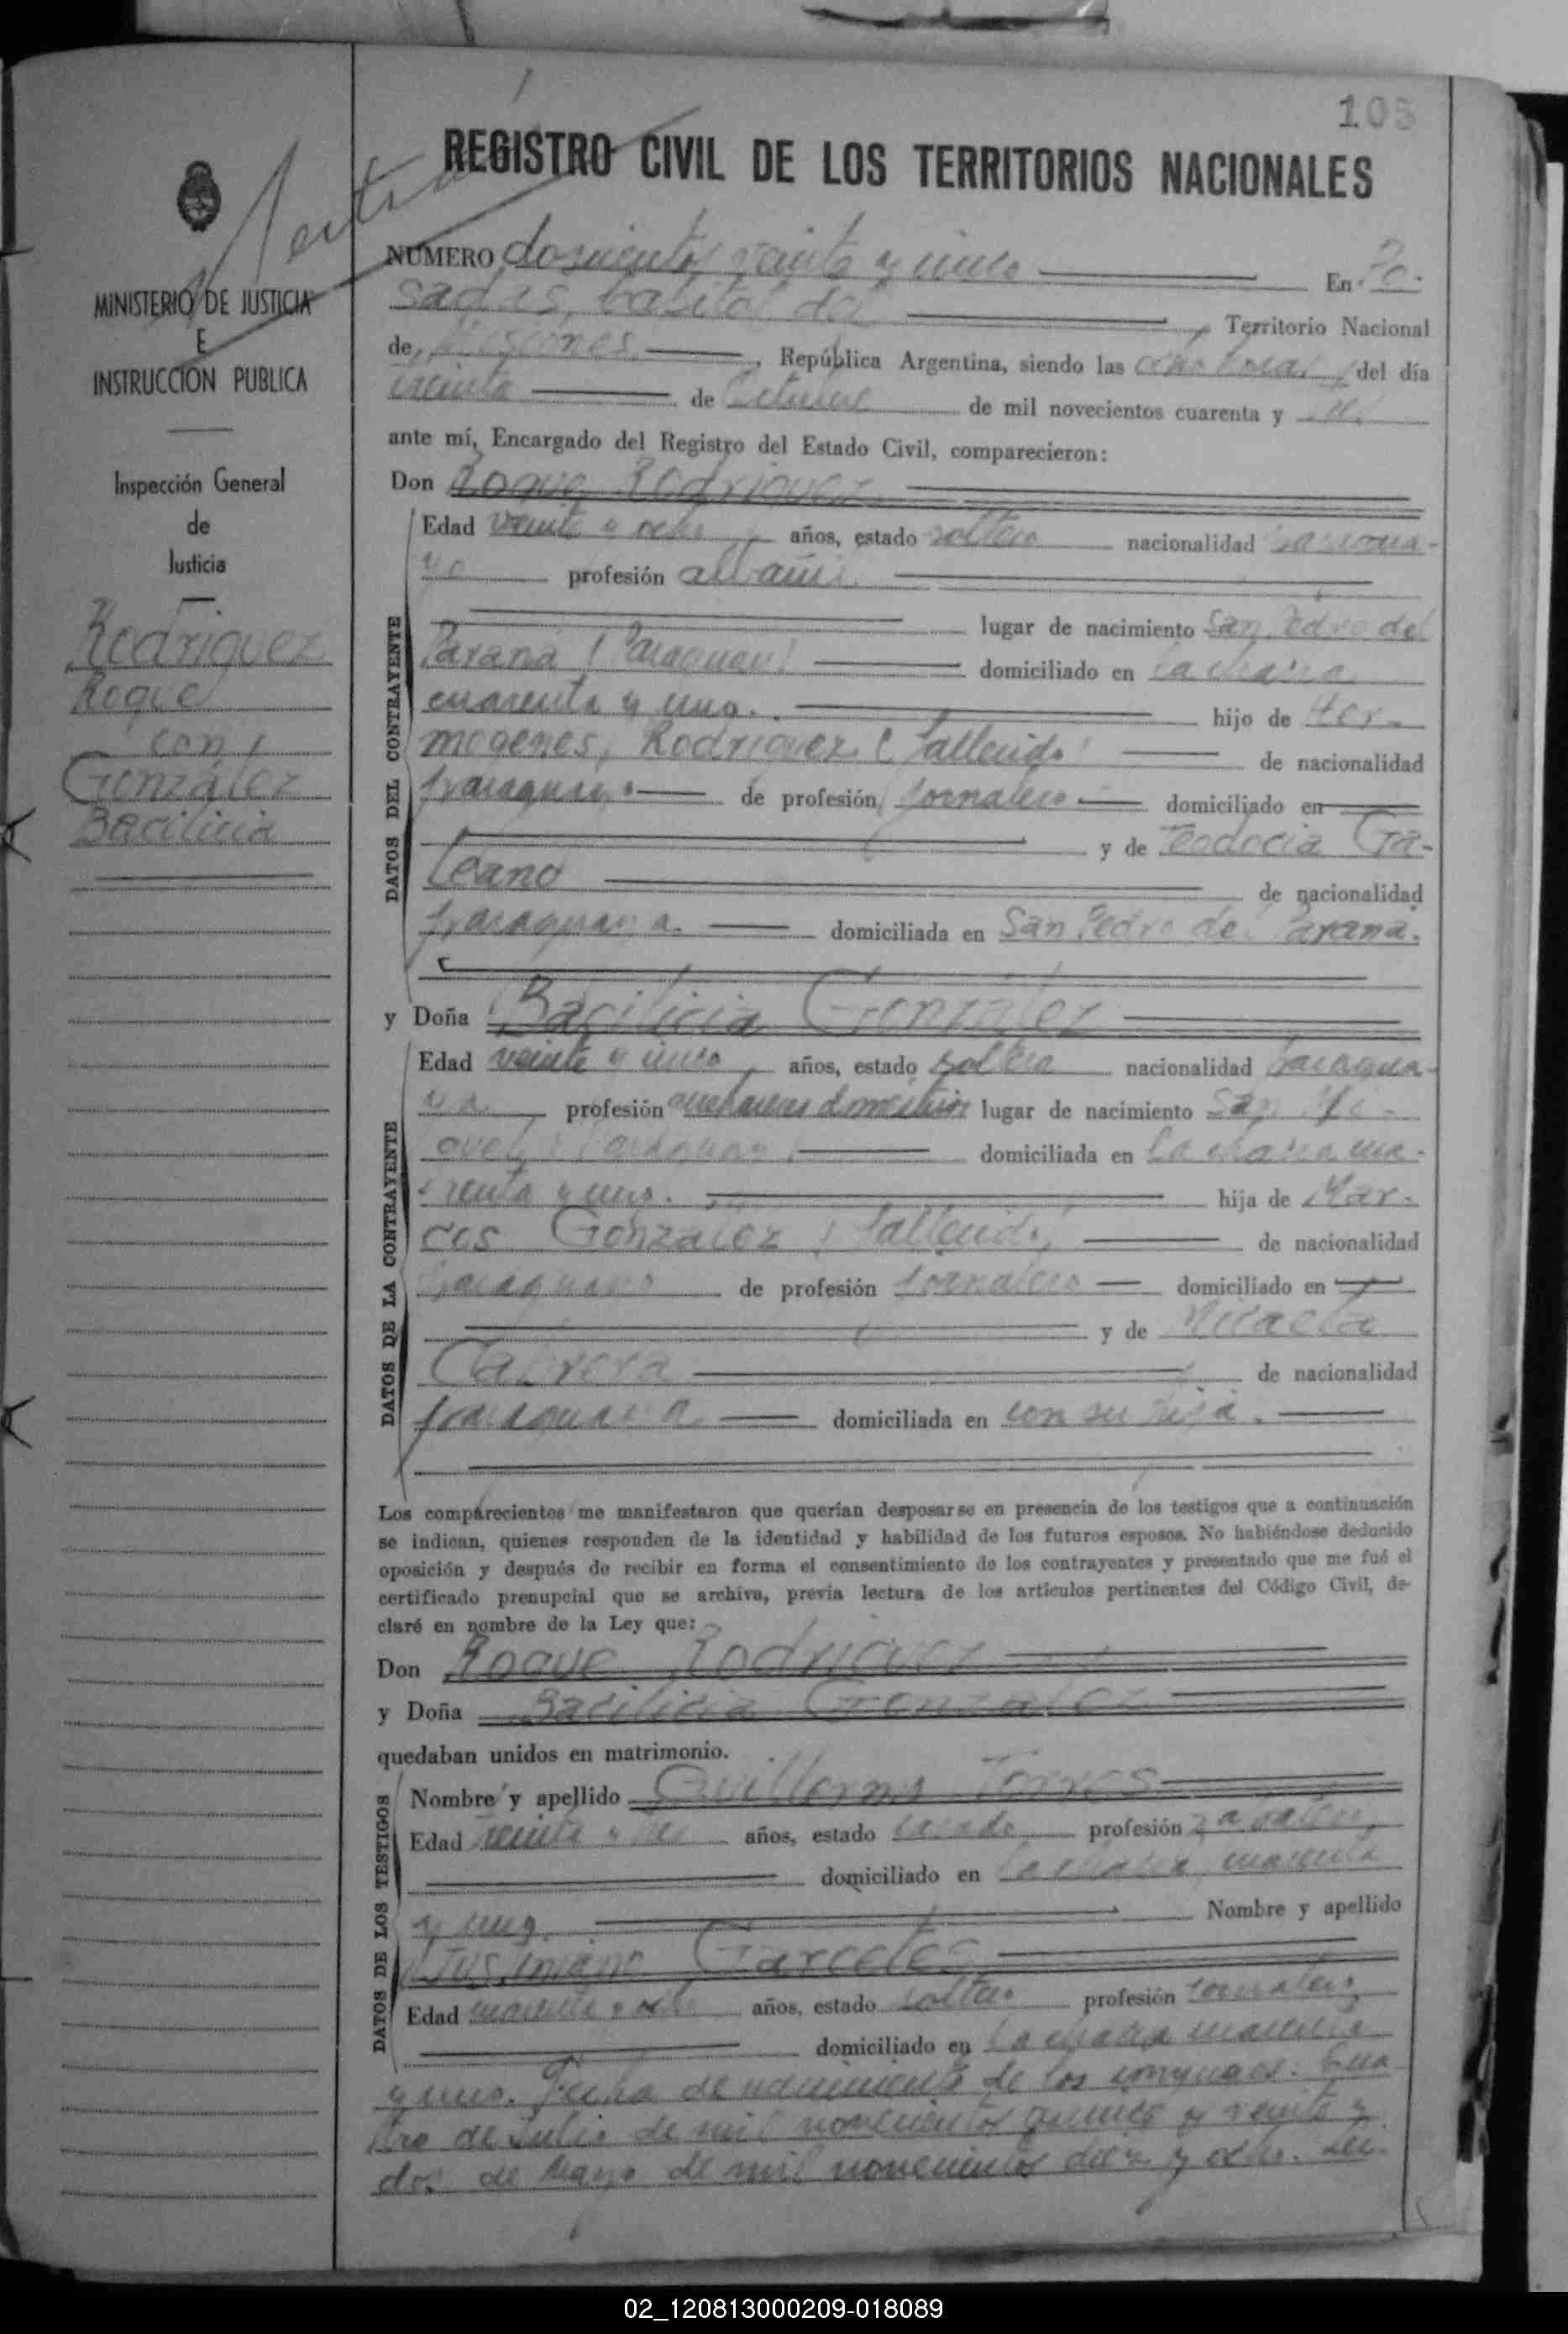 105
REGISTRO CIVIL DE LOS TERRITORIOS NACIONALES
MINISTERIO DE JUSTICIA
E
INSTRUCCIÓN PUBLICA
Inspección General
de
Justicia
Rodriguez
Roque
con
González
Bacilicia
NÚMERO doscientos veinte y cinco En Po-
sadas, Capital del, Territorio Nacional
de Misiones, República Argentina, siendo las ocho horas del día
treinta de Octubre de mil novecientos cuarenta y
ante mí, Encargado del Registro del Estado Civil, comparecieron:
Don Roque Rodriguez
DATOS DEL CONTRAYENTE
Edad veinte y ocho años, estado soltero nacionalidad paragua-
yo profesión albañil
lugar de nacimiento San Pedro del
Paraná (Paraguay) domiciliado en la chacra
cuarenta y uno. hijo de Her-
mogenes Rodriguez (fallecido) de nacionalidad
paraguayo de profesión jornalero domiciliado en
y de Teodocia Ga-
leano de nacionalidad
paraguaya. domiciliada en San Pedro del Paraná.
y Doña Bacilicia González
DATOS DE LA CONTRAYENTE
Edad veinte y cinco años, estado soltera nacionalidad paragua-
ya profesión quehaceres domésticos lugar de nacimiento San Mi-
guel (Paraguay) domiciliada en la chacra cua-
renta y uno. hija de Mar-
cos González (fallecido) de nacionalidad
paraguayo de profesión jornalero domiciliado en
y de Micaela
Cabrera de nacionalidad
paraguaya domiciliada en con su hija.
Los comparecientes me manifestaron que querían desposarse en presencia de los testigos que a continuación
se indican, quienes responden de la identidad y habilidad de los futuros esposos. No habiéndose deducido
oposición y después de recibir en forma el consentimiento de los contrayentes y presentado que me fué el
certificado prenupcial que se archiva, previa lectura de los artículos pertinentes del Código Civil, de-
claré en nombre de la Ley que:
Don Roque Rodriguez
y Doña Bacilicia González
quedaban unidos en matrimonio.
DATOS DE LOS TESTIGOS
Nombre y apellido Guillermo Torres
Edad treinta y años, estado casado profesión zapatero,
domiciliado en la chacra cuarenta
y uno. Nombre y apellido
Justiniano Garcete
Edad cuarenta y ocho años, estado soltero profesión jornalero,
domiciliado en la chacra cuarenta
y uno. Fecha de nacimiento de los conyuges: Cua-
tro de Julio de mil novecientos quince y veinte y
dos de Mayo de mil novecientos diez y ocho. Lei-
02_120813000209-018089